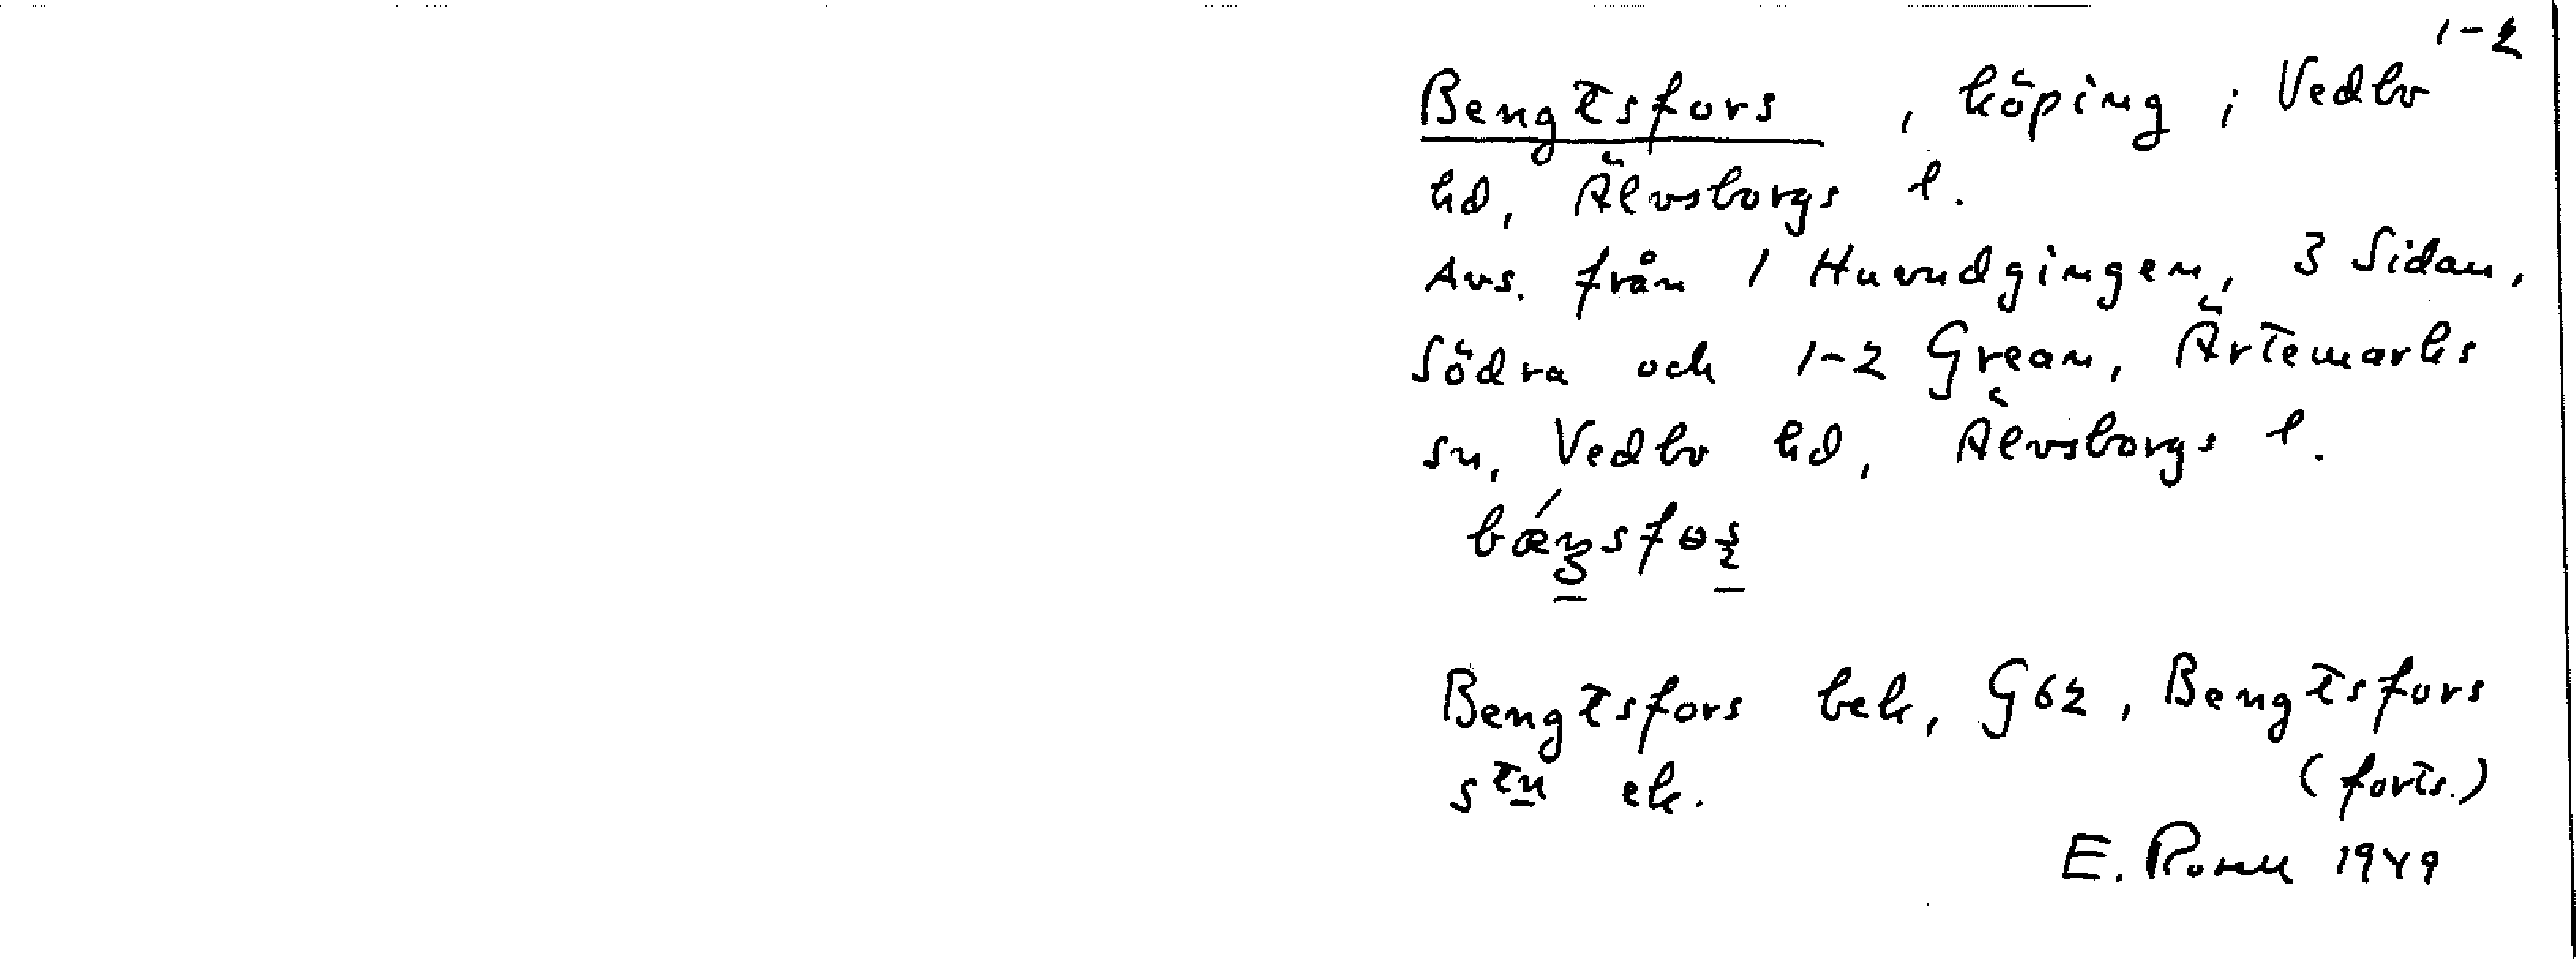 1-2
Bengtsfors, köping i Vedbo
hd, Älvsborgs l.
Avs. från 1 Huvudgingen, 3 Sidan,
Södra och 1-2 Grean, Ärtemarks
sn, Vedbo hd, Älvsborgs l.
Bengtsfors bek, G62, Bengtsfors
stn ek. (forts.)
E. Rosell 1949